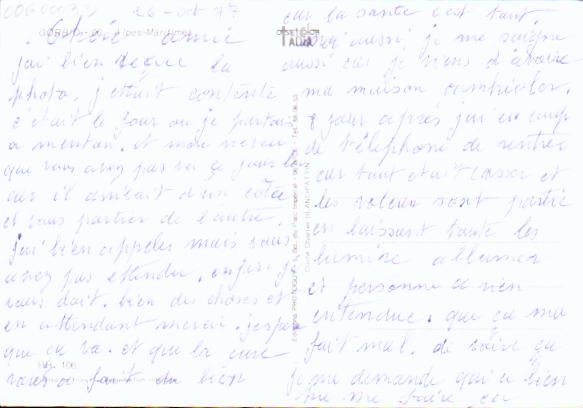 26-oct 77
GORBIO - 06 - Alpes-Maritimes
Chère amie
j'ai bien reçue la
photo. j'ettait contente
c etait le jour ou je partais
a menton. et mon neveu
que vous avez pas vu ce jour la
car il arrivait d'un côtée
et vous partier de l'autre.
j'ai bien appeler mais vous
avez pas ettendu. enfin. je
vous dait. bien des choses et
en attendant merci. j'espere
que ça va. et que la cure
vous a fait du bien
106
car la santé c'est tout
moi aussi, je me soigne
aussi car je viens d'avoire
ma maison cambrioler.
jour après j'ai eu coup
de téléphone de rentrer
car tout etait casser et
les voleur sont partie
en laissent toute les
lumière allumer
et personne a rien
entendue. que ça me
fait mal. de voire ça
je me demande qui a bien
me faire ça